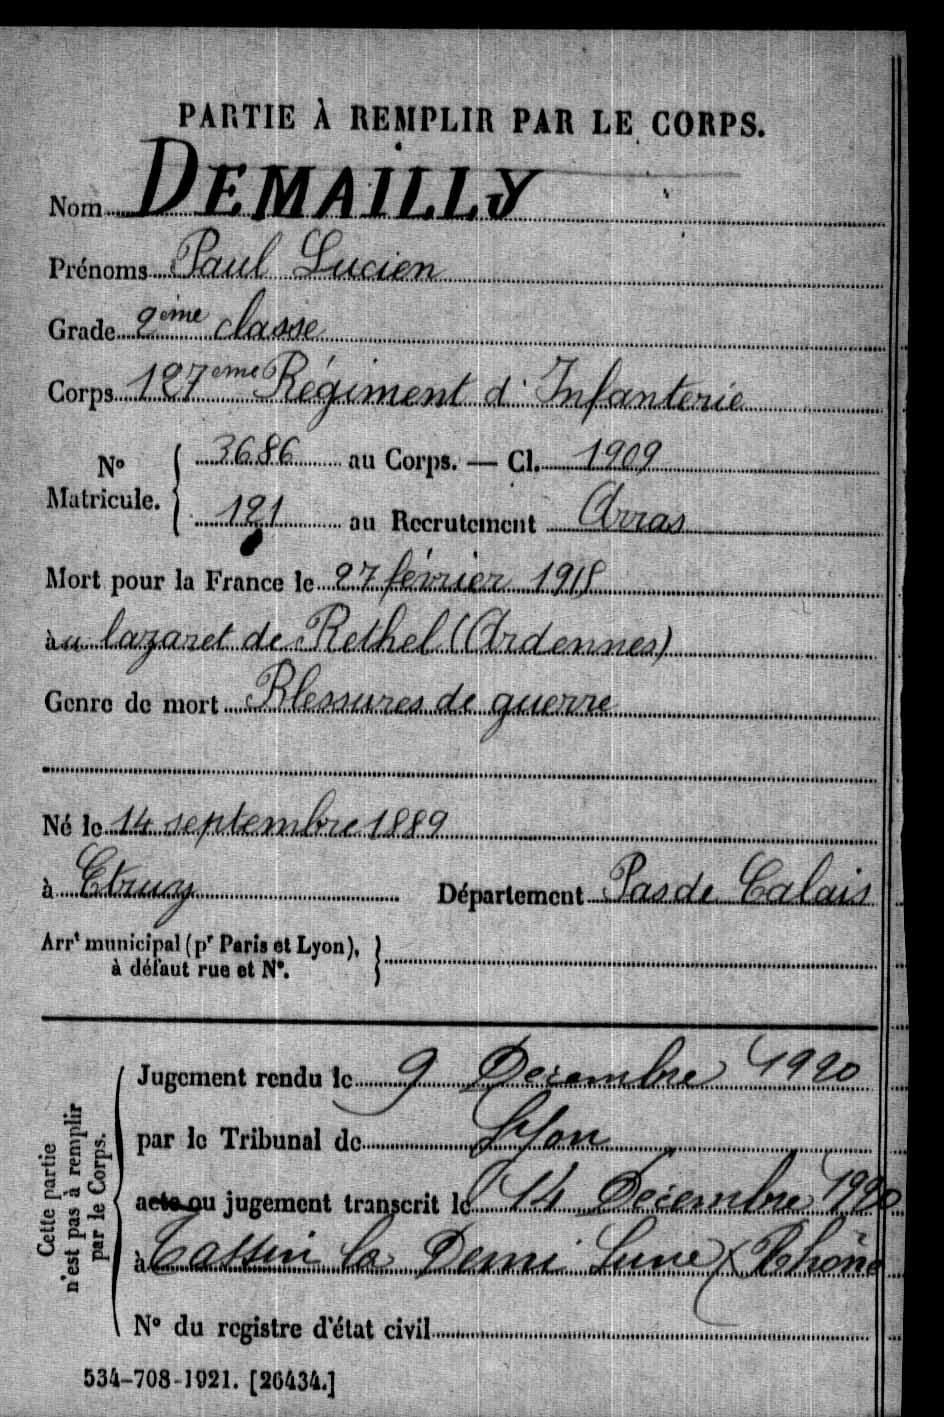 PARTIE À REMPLIR PAR LE CORPS.
Nom DEMAILLY
Prénoms Paul Lucien
Grade 2ème classe
Corps 127eme Régiment d'Infanterie
N° Matricule. { 3686 au Corps. — Cl. 1909
121 au Recrutement Arras
Mort pour la France le 27 février 1915
àu lazaret de Rethel (Ardennes)
Genre de mort Blessures de guerre
Né le 14 septembre 1889
à Etrun Département Pas de Calais
Arrt municipal (pr Paris et Lyon), à défaut rue et N°. }
Cette partie n'est pas à remplir par le Corps.
Jugement rendu le 9 Decembre 1920
par le Tribunal de Lyon
acte ou jugement transcrit le 14 Decembre 1920
à Tassin la Demi Lune (Rhône
N° du registre d'état civil
534-708-1921. [26434.]